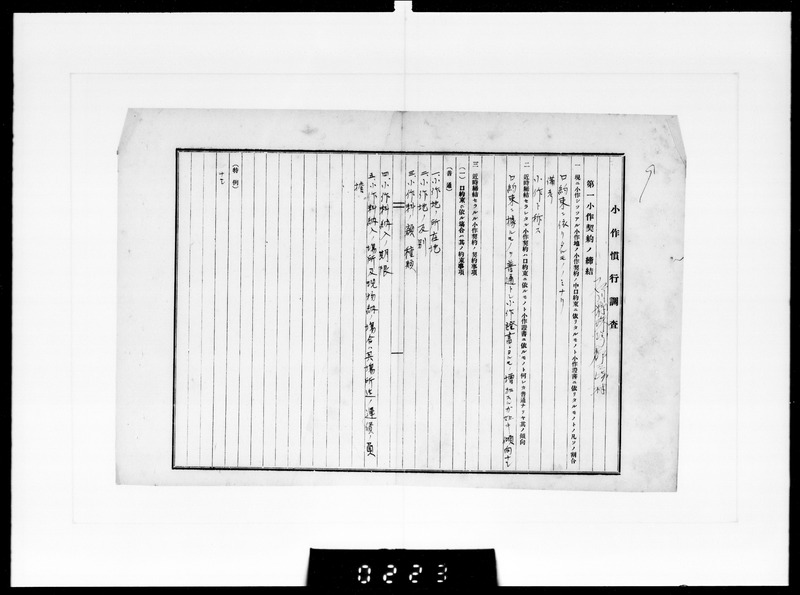 小作慣行調査
第一 小作契約ノ締結
一 現ニ小作シツツアル小作地ノ小作契約ノ中口約束ニ依リタルモノト小作證書ニ依リタルモノトノ凡ソノ割合
口約束ニ依リタルモノノミナリ
備考
小作ト称ス
二 近時締結セラレタル小作契約ハ口約束ニ依ルモノト小作證書ニ依ルモノト何レカ普通ナリヤ其ノ傾向
口約束ニ據ルモノヲ普通トシ小作證書ニヨルモノ増加スルガ如キ傾向ナシ
三 近時締結セラルル小作契約ノ契約事項
(一) 口約束ニ依ル場合ハ其ノ約束事項
(普通)
一、小作地ノ所在地
二、小作地ノ反別
三、小作料ノ額種類
四、小作料納入ノ期限
五、小作料納入ノ場所及現物納ノ場合ハ其場所迄ノ運賃ノ負
擔
(特例)
ナシ
0223